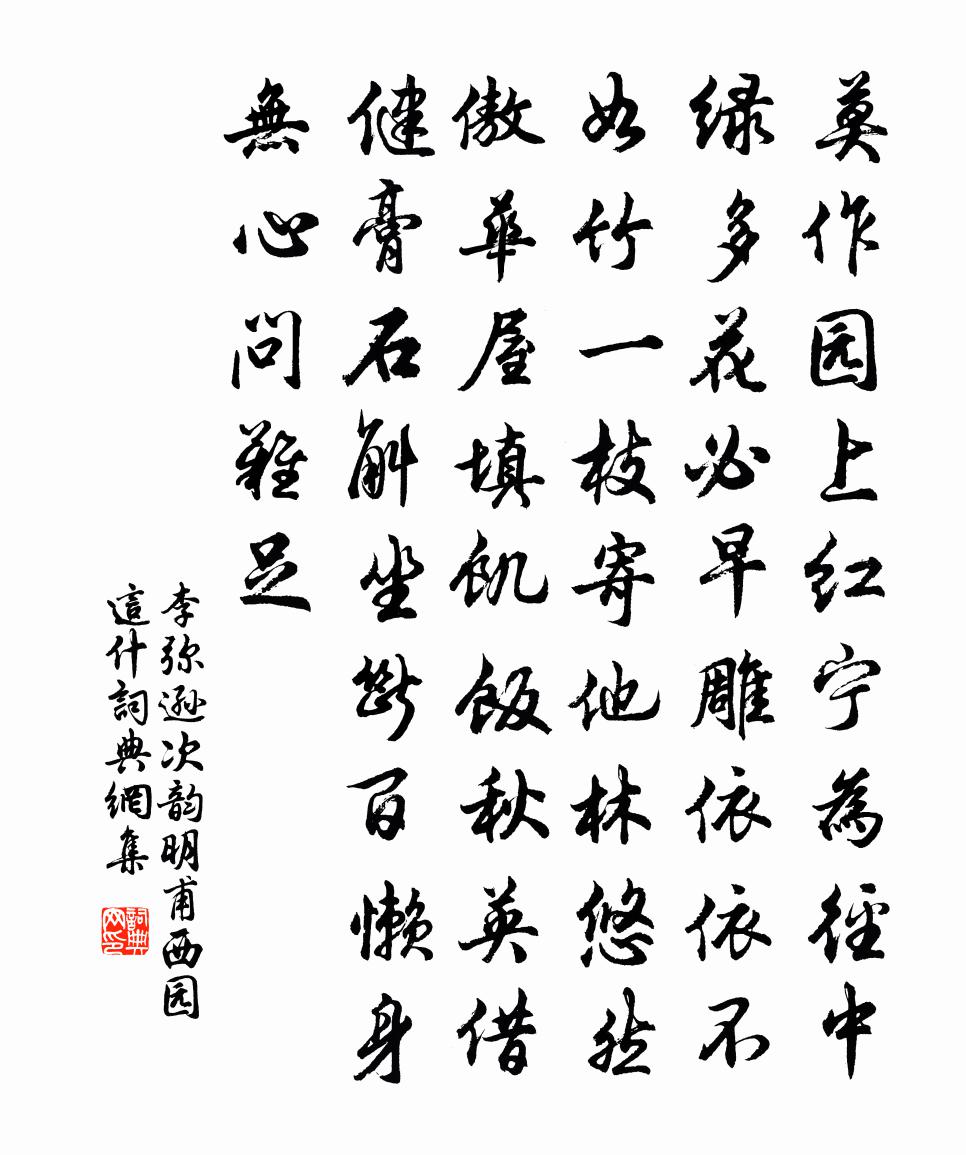 莫作园上红宁為径中
绿多花必早雕依依不
如竹一枝寄他林悠然
傲華屋填飢飯秋英借
健膏石斛坐斷百懒身
無心問難足
李弥遜次韵明甫西园
這什詞典網集
詞典网印